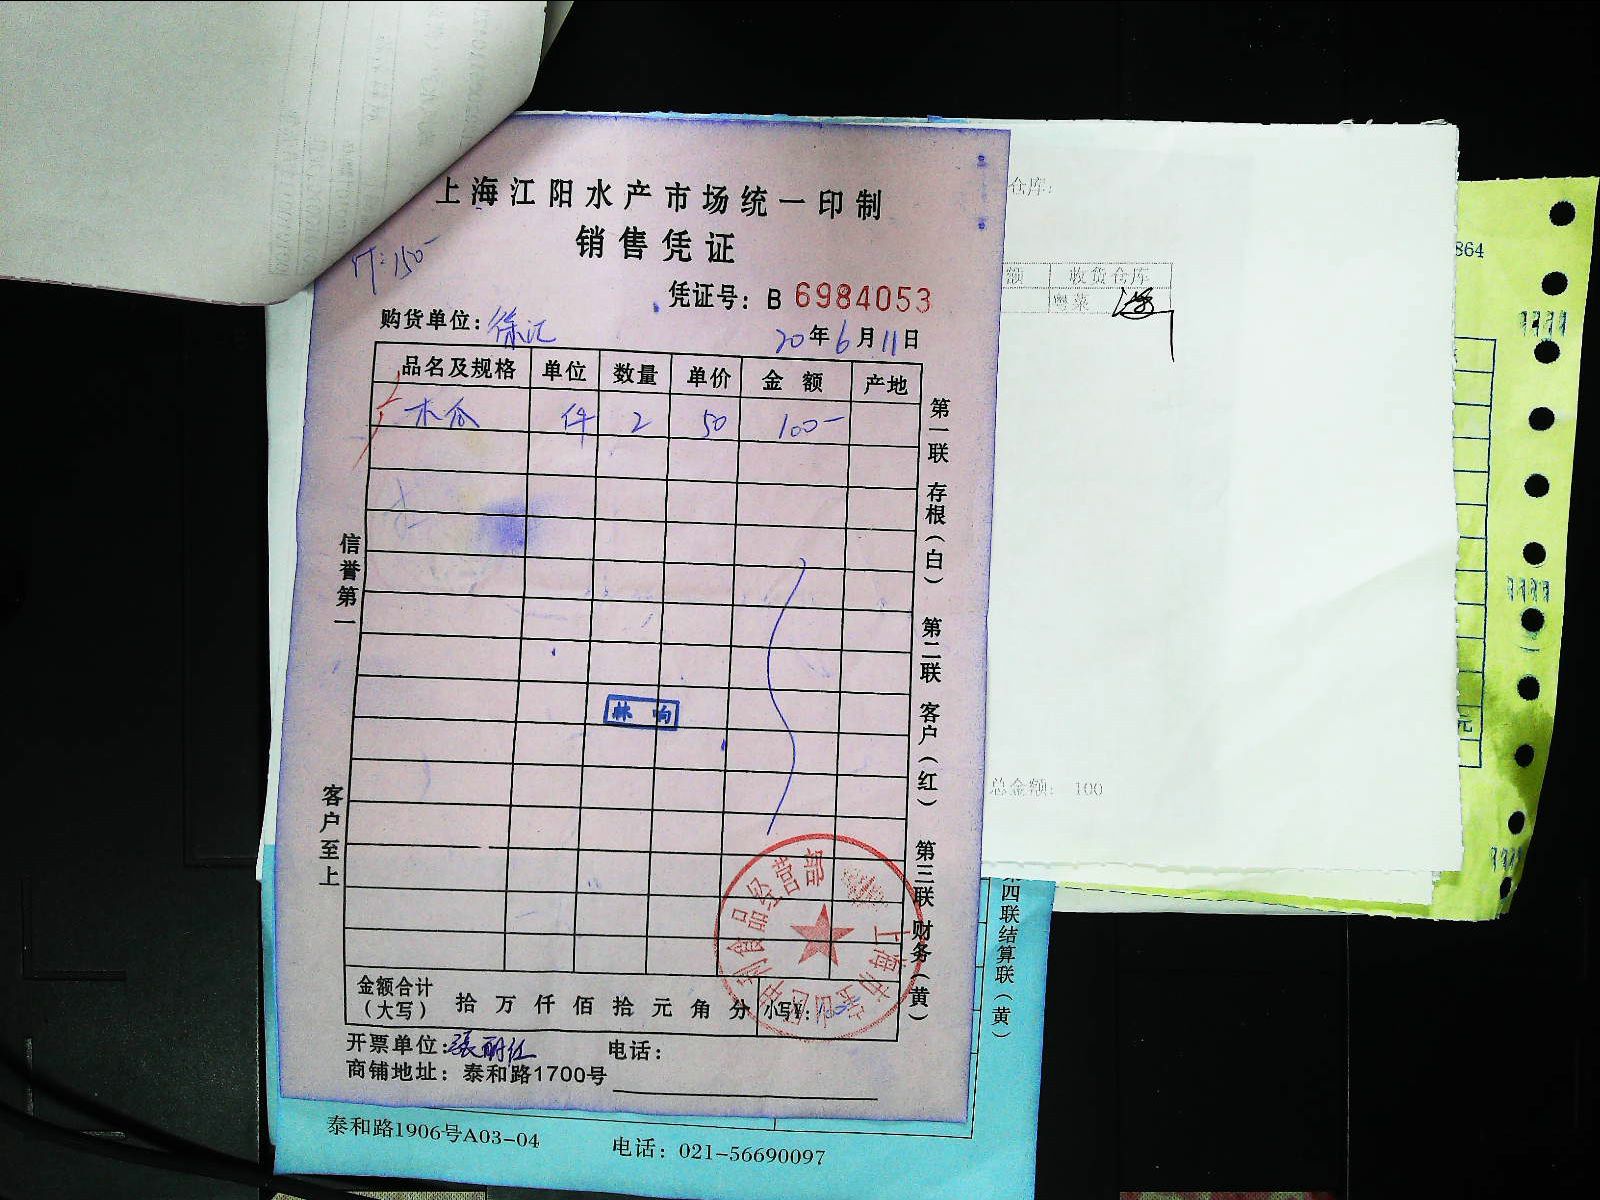 上海江阳水产市场统一印制
销售凭证
凭证号：B 6984053
购货单位：徐汇
20年6月11日
品名及规格 单位 数量 单价 金额 产地
木瓜 件 2 50 100-
第一联 存根（白） 第二联 客户（红） 第三联 财务（黄）
信誉第一
客户至上
林响
金额合计（大写） 拾 万 仟 佰 拾 元 角 分 小写¥:
开票单位：张丽红 电话：
商铺地址：泰和路1700号
泰和路1906号A03-04 电话：021-56690097
仓库：
额 收货仓库
粤菜
总金额： 100
四联结算联（黄）
864
元